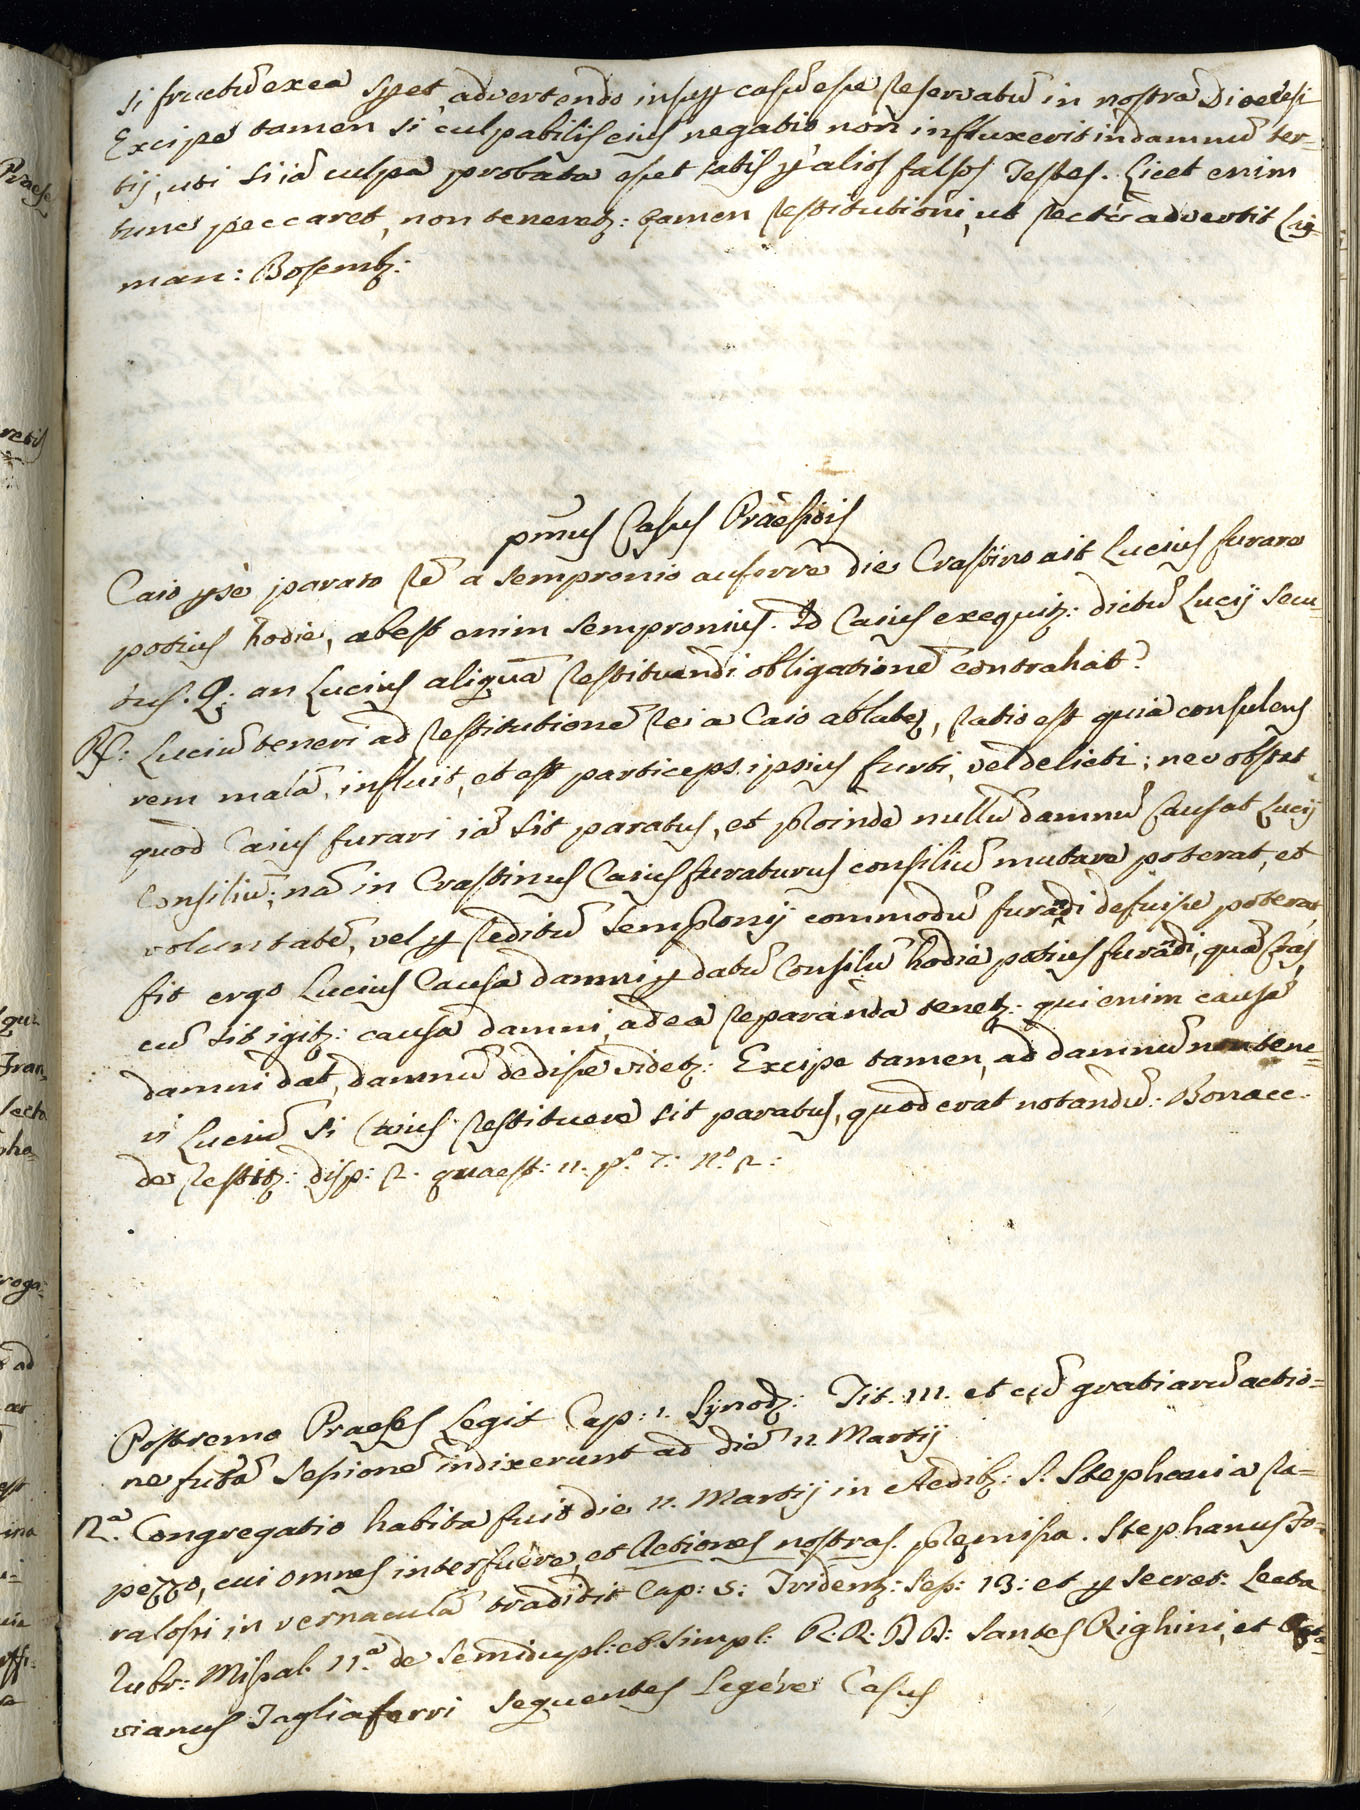 si fructũ exea sp̱et, advertendo insup̱ casũ esse reservatũ in nostra Dioecesi
Excipe tamen si culpabilis eius negatio non influxerit in damnũ ter=
tij, uti si iã culpa probata esset satis p̱ alios falsos Testes. Licet enim
tunc peccaret, non teneretʒ: tamen restitutioni, ut recte advertit Lig=
man: Bosembʒ:
pm̃us Casus Praesidis
Caio p̱se parato rẽ a Sempronio auferre die Crastino ait Lucius furare
potius hodie, abest enim Sempronius. Id Caius exequitʒ: dictũ Lucij secu=
tus. Q: an Lucius aliquã restituendi obligationẽ contrahat?
Rs: Luciũ teneri ad restitutionẽ rei a Caio ablatę, ratio est quia consulens
rem malã, influit, et est particeps ipsius furti, vel delicti; nec obstat
quod Caius furari iã sit paratus, et p̱roinde nullũ damnũ Causat Lucij
Consiliũ; nã in Crastinus Caius furaturus consiliũ mutare poterat, et
voluntatẽ, vel p̱ reditũ Sempronij commodũ furãdi defuisse poterat
fit ergo Lucius Causa damni p̱ datũ Consiliũ hodie potius furãdi, quã cras,
cũ sit igitʒ: causa damni, ad ea reparanda tenetʒ: qui enim causã
damni dat, damnũ dedisse videtʒ: Excipe tamen, ad damnũ non tene=
ri Luciũ si Caius restituere sit paratus, quod erat notandũ. Bonacc.
de restitʒ: disp: 2. quaest: 11. p.º 7: n.º 2:
Postremo Praeses Legit Cap: 1. Synodʒ: Tit. III. et cũ gratiarũ actio=
ne futã Sessionẽ indixerunt ad diẽ 11 Martij
12.ª Congregatio habita fuit die 11. Martij in Aedibʒ: S. Stephani a Ra=
pezzo, cui omnes interfuere, et Actiones nostras p̱remissa. Stephanus Fo=
ralossi in vernaculã tradidit Cap: 5: Tridenʒ: Sess: 13: et p̱ secret: Lecta
Rubr: Missal. 11.ª de Semidupl: et Simpl: R.R: D D: Santes Righini, et Octa=
vianus Tagliaferri Sequentes Legere Casus